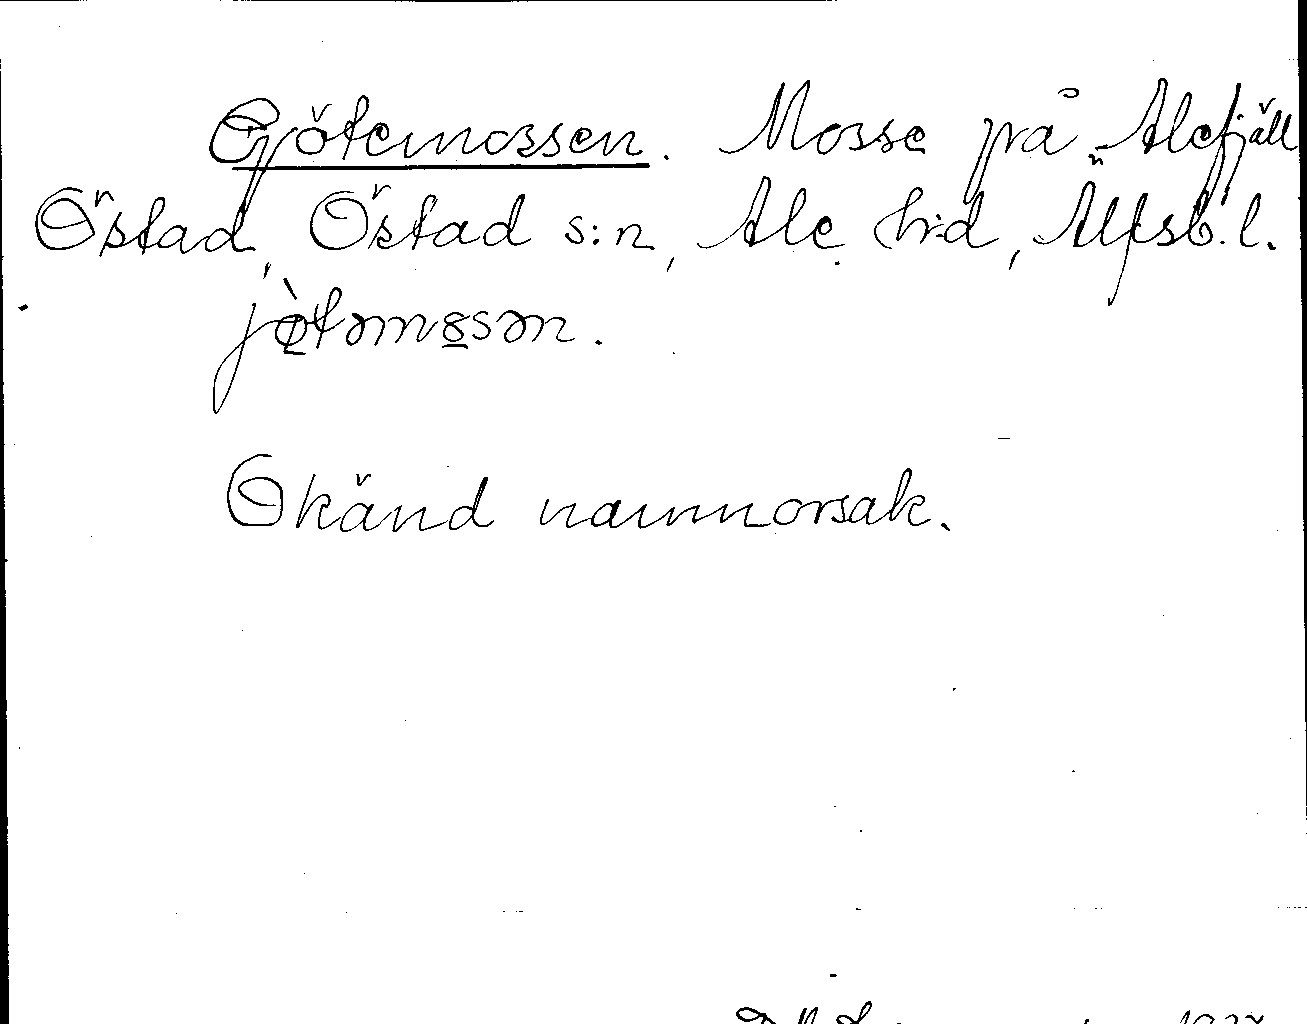 Gjötemossen. Mosse på Alefjäll
Östad, Östad s:n, Ale h:d, Älfsb. l.
jötəmossən.
Okänd namnorsak.